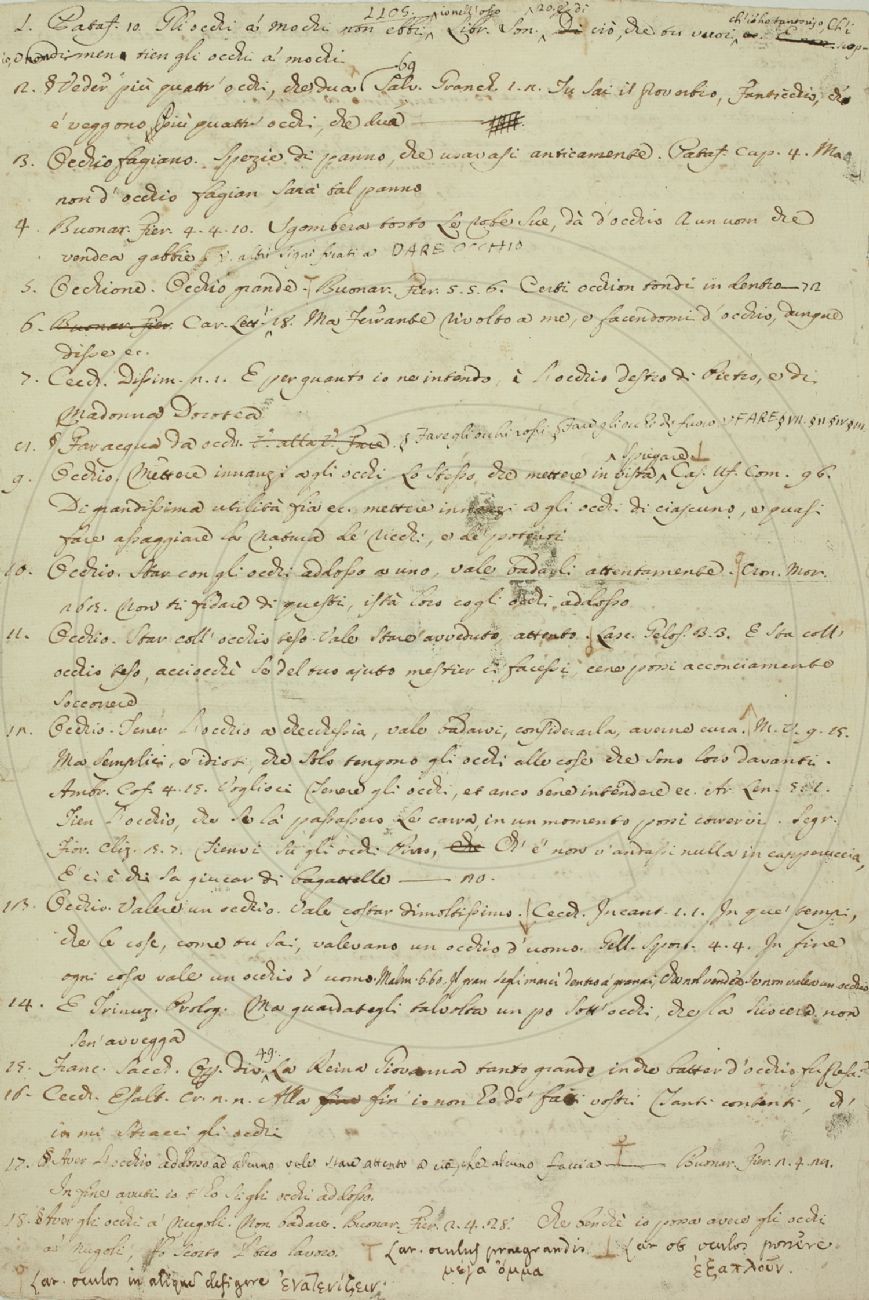 1. Pataf. 10. Gli occhi a' mochi non ebbi, Libr. Son. Di ciò, che tu vuoi,
tien gli occhi a' mochi
2. § Veder più quattr' occhi, che dua Salv. Granch. 1. 2. Tu sai il proverbio, Fanticchio, che
e' veggono più quattr' occhi, che dua
3. Occhio fagiano. Spezie di panno, che usavasi anticamente. Pataf. cap. 4. Ma
non d' occhio fagian sarà tal panno
4. Buonar. Fier. 4. 4. 10. Sgombera tosto le robe sue, dà d'occhio A un uom che
vendea gabbie DARE OCCHIO
5. Occhione. Occhio grande. Buonar. Fier. 5. 5. 6. Certi occhion tondi in dentro 72
6. Buonar. Fier. Car. Lett. 18. Ma Ferrante rivolto a me, e facendomi d'occhio, dunque
disse ec.
7. Cecch. Dissim. 2. 1. E per quanto io ne intendo, è l'occhio destro di Pietro, e di
Madonna Dorotea
§ Far acqua da occhi. § Fare gli occhi rossi. § Fare gli occhi di fuore V. FARE
Spiegare
9. Occhio. Mettere innanzi agli occhi lo stesso, che mettere in vista Cas. Uf. Com. 96.
Di grandissima utilità fia ec. mettere innanzi a gli occhi di ciascuno, e quasi
fare assaggiare la natura de' ricchi, e de' potenti
10. Occhio. Star con gli occhi addosso a uno, vale badargli attentamente. Cron. Mor.
Non ti fidare di questi, istà loro cogli occhi addosso
11. Occhio. Star coll' occhio teso. Vale stare avveduto, attento. Lasc. Gelos. 3. 3. E sta coll'
occhio teso, acciocchè se del tuo ajuto mestier ci facessi, cene possi acconciamente
soccorere
12. Occhio. Tener l'occhio a checchessia, vale badarvi, considerarla, averne cura. M. V. 9. 15.
Ma semplici, e idioti, che solo tengono gli occhi alle cose che sono loro davanti.
Ambr. Cof. 4. 15. Vogliaci tenere gli occhi, et anco bene intendere ec. Ar. Len. 5. 1.
Tien l'occhio, che se là passassero le carra, in un momento possi corrervi. Segr.
Fior. Cliz. 3. 7. Tienvi su gli occhi Pirro, che Ch' e' non v'andassi nulla in capperuccia,
E ci è chi sa giucar di bagattelle 20.
13. Occhio. Valere un occhio. Vale costar dimoltissimo. Cecch. Incant. 1. 1. In que' tempi,
che le cose, come tu sai, valevano un occhio d'uomo. Gell. Sport. 4. 4. In fine
ogni cosa vale un occhio d' uomo. Malm. 6. 60.
14. E Trinuz. Prolog. Ma guardategli talvolta un po sott' occhi, che la suocera non
sen' avvegga
15. Franc. Sacch. Op. div. 49. La Reina Giovanna tanto grande in che batter d'occhio fu
16. Cecch. Esalt. Cr. 2. 2. Alla fine fin' io non ho de' fatti vostri Tanti contenti, ch'
io mi stracci gli occhi
17. § Aver l'occhio addosso ad alcuno vale stare attento a ciò, che alcuno faccia Buonar. Fier. 2. 4. 24.
In fine avuti io t' ho su gli occhi addosso.
18. § Aver gli occhi a' nugoli. Non badare. Buonar. Fier. 2. 4. 28. Che benchè io possa avere gli occhi
a' nugoli, fo scorto l'tuo lavoro. Lat. oculus praegrandis. Lat. ob oculos ponere
μέγα ὄμμα ἐξαπλοῦν.
Lat. oculos in aliquē defigere ἐνατενίζειν